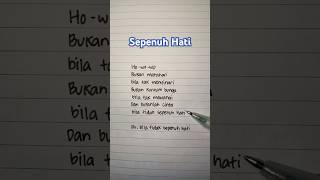 Sepenuh Hati
Ho-wo-wo
Bukan matahari
bila tak menyinari
Bukan kuntum bunga
bila tak mewangi
Dan bukanlah cinta
bila tidak sepenuh hati
Oh, bila tidak sepenuh hati
Dan bu
bila tak
hati